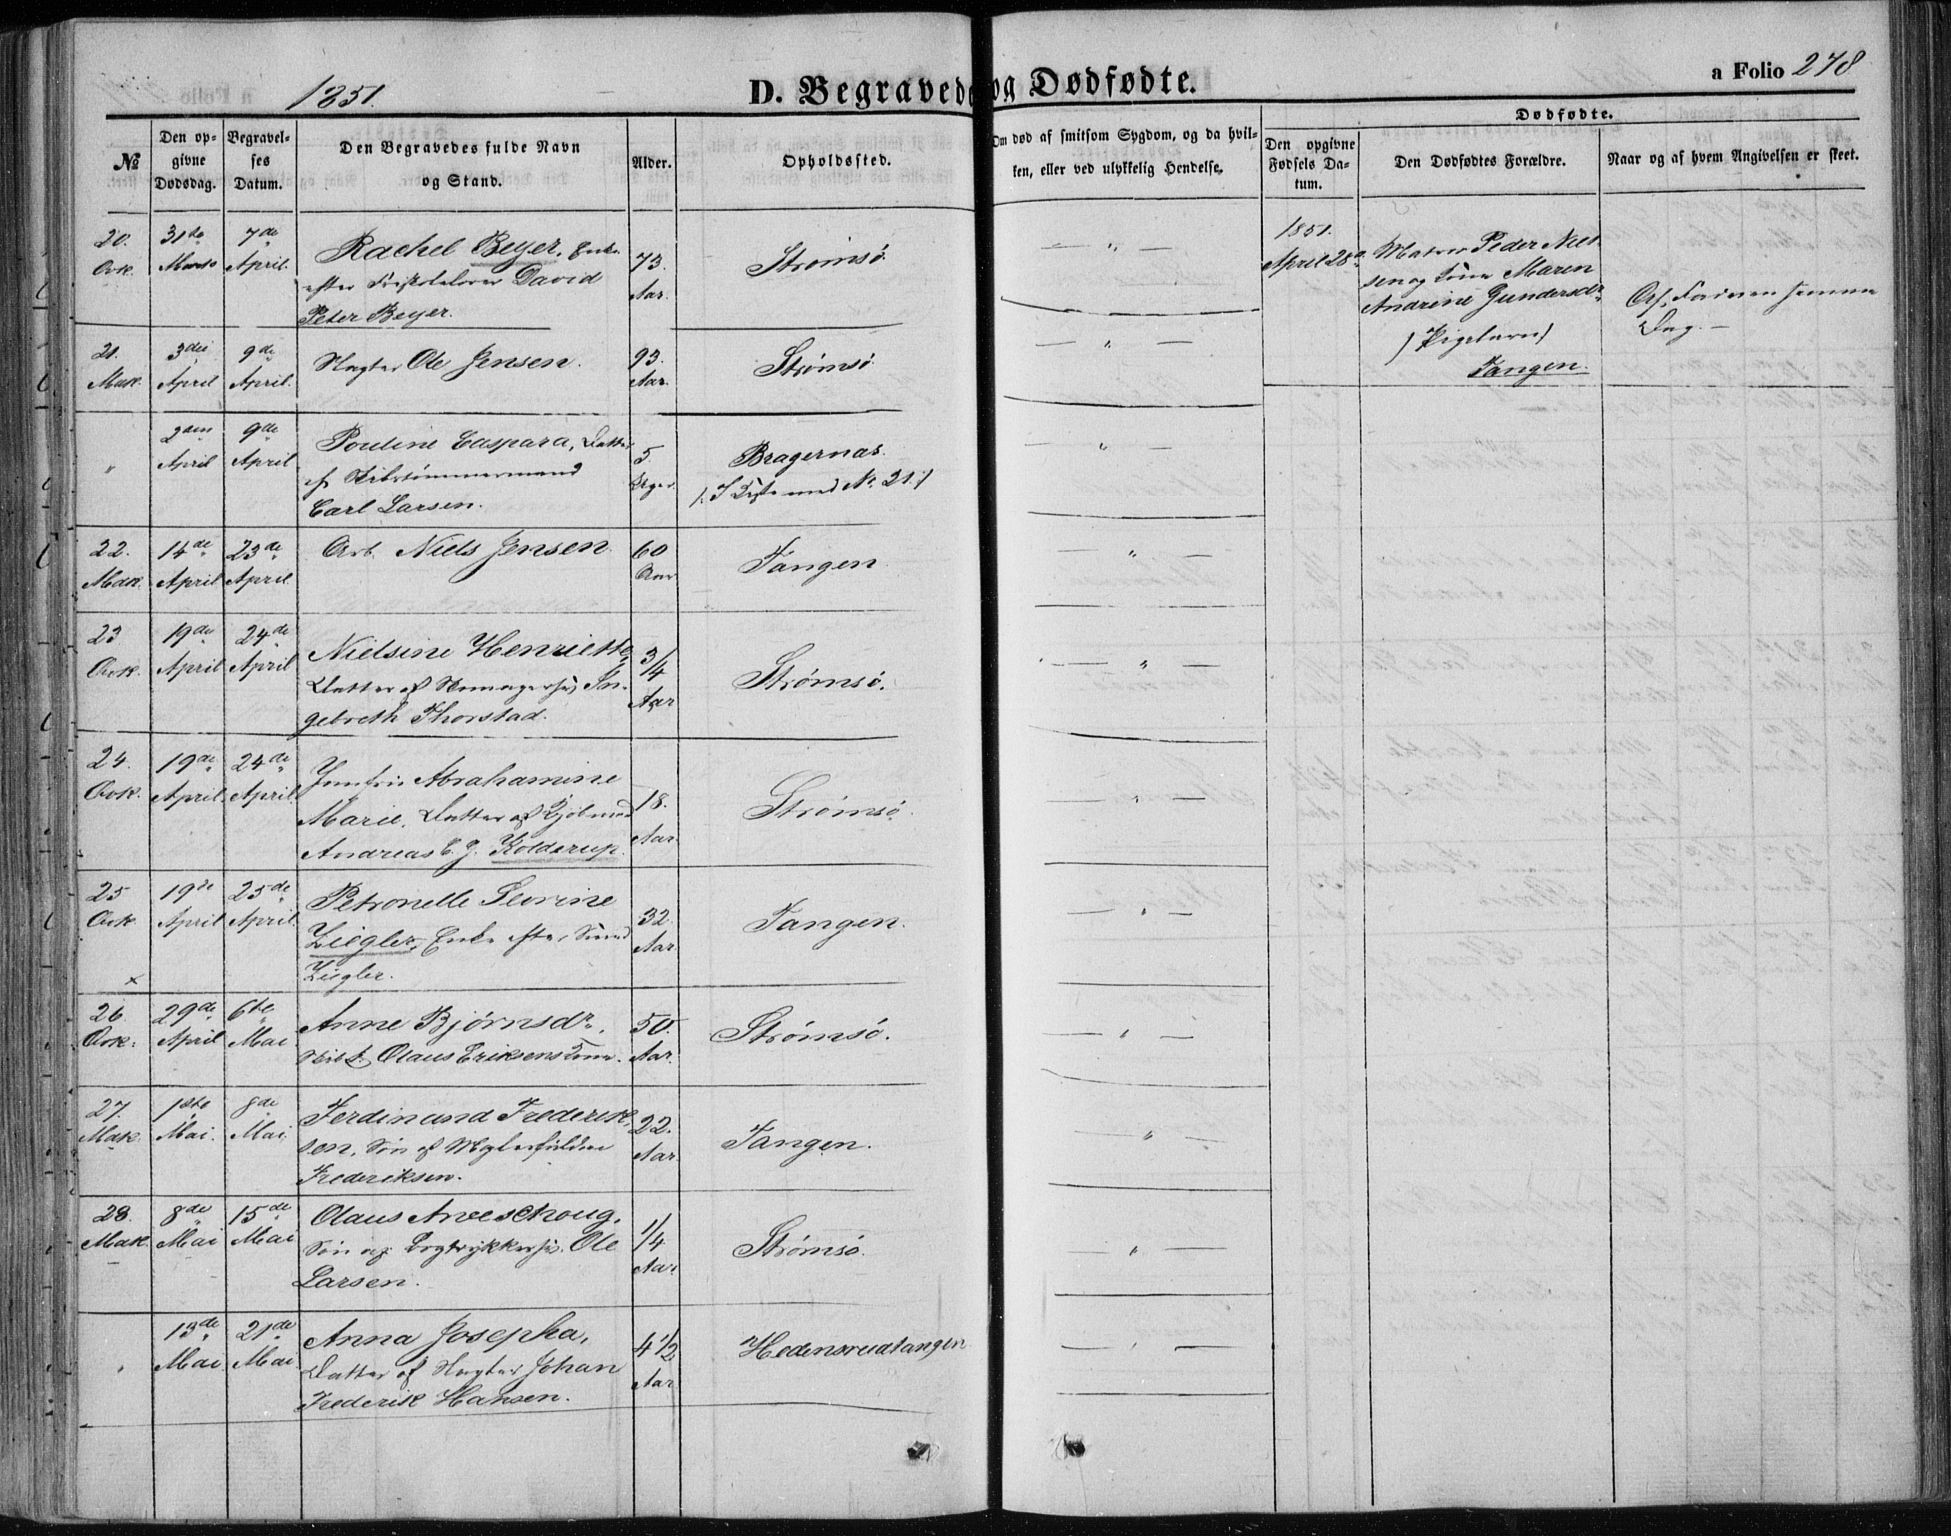 1851.
D. Begravede og Dødfødte.
a Folio 278
№
Den opgivne Dødsdag.
Begravelses Datum.
Den Begravedes fulde Navn og Stand.
Alder.
Opholdssted.
Om død af smitsom Sygdom, og da hvilken, eller ved ulykkelig Hendelse.
Dødfødte.
Den opgivne Fødsels Datum.
Den Dødfødtes Forældre.
Naar og af hvem Angivelsen er skeet.
20. 31te 7de
Marts April.
Rachel Beyer, Enke
efter David
Peter Beyer.
73. Aar.
Strømsø
21. 3die 9de
Mdk. April April.
Ole Jensen.
93. Aar.
Strømsø.
" 2den 9de
April April
Pouline Caspara, Datter
af
Carl Larsen.
5
Bragernæs.
med No. 21
22. 14de 23de
Mdk. April April.
Arb. Niels Jensen
60 Aar
Tangen
23 19de 24de
April April
Nielsine Henriette
Datter af In-
gebreth Thorstad.
3/4 Aar
Strømsø.
24. 19de 24de
April. April
Jomfru Abrahamine
Marie, Datter af Kjøbmand
Andreas C. J. Kolderup.
18. Aar.
Strømsø.
25 19de 25de
April April.
Petronelle Severine
Ziegler, Enke efter
Ziegler.
32. Aar.
Tangen.
x
26 29de 6te
April Mai
Anne Bjørnsdr.
Olaus Eriksens Kone.
50. Aar.
Strømsø.
27. 1ste 8de
Mdk. Mai. Mai
Ferdinand Frederik-
sen, Søn af
Frederiksen.
22. Aar.
Tangen.
28. 8de 15de
Mdk. Mai Mai
Olaus Aveschoug,
Søn af Bogtrykkersv. Ole
Larsen.
1/4 Aar
Strømsø.
" 13de 21de
Mai Mai
Anna Josepha,
Datter af Johan
Frederik Hansen.
4 1/2 Aar
Hedensrudtangen
1851.
April 28de
Matros Peder Niel-
sen og Kone Maren
Andrine Gundersdr.
(Pigebarn)
Tangen.
Af Faderen samme
Dag. —